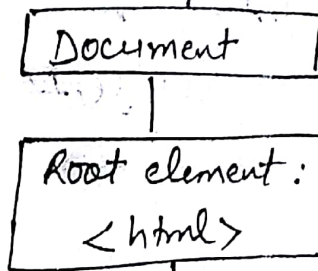 Document
Root element:
<html>